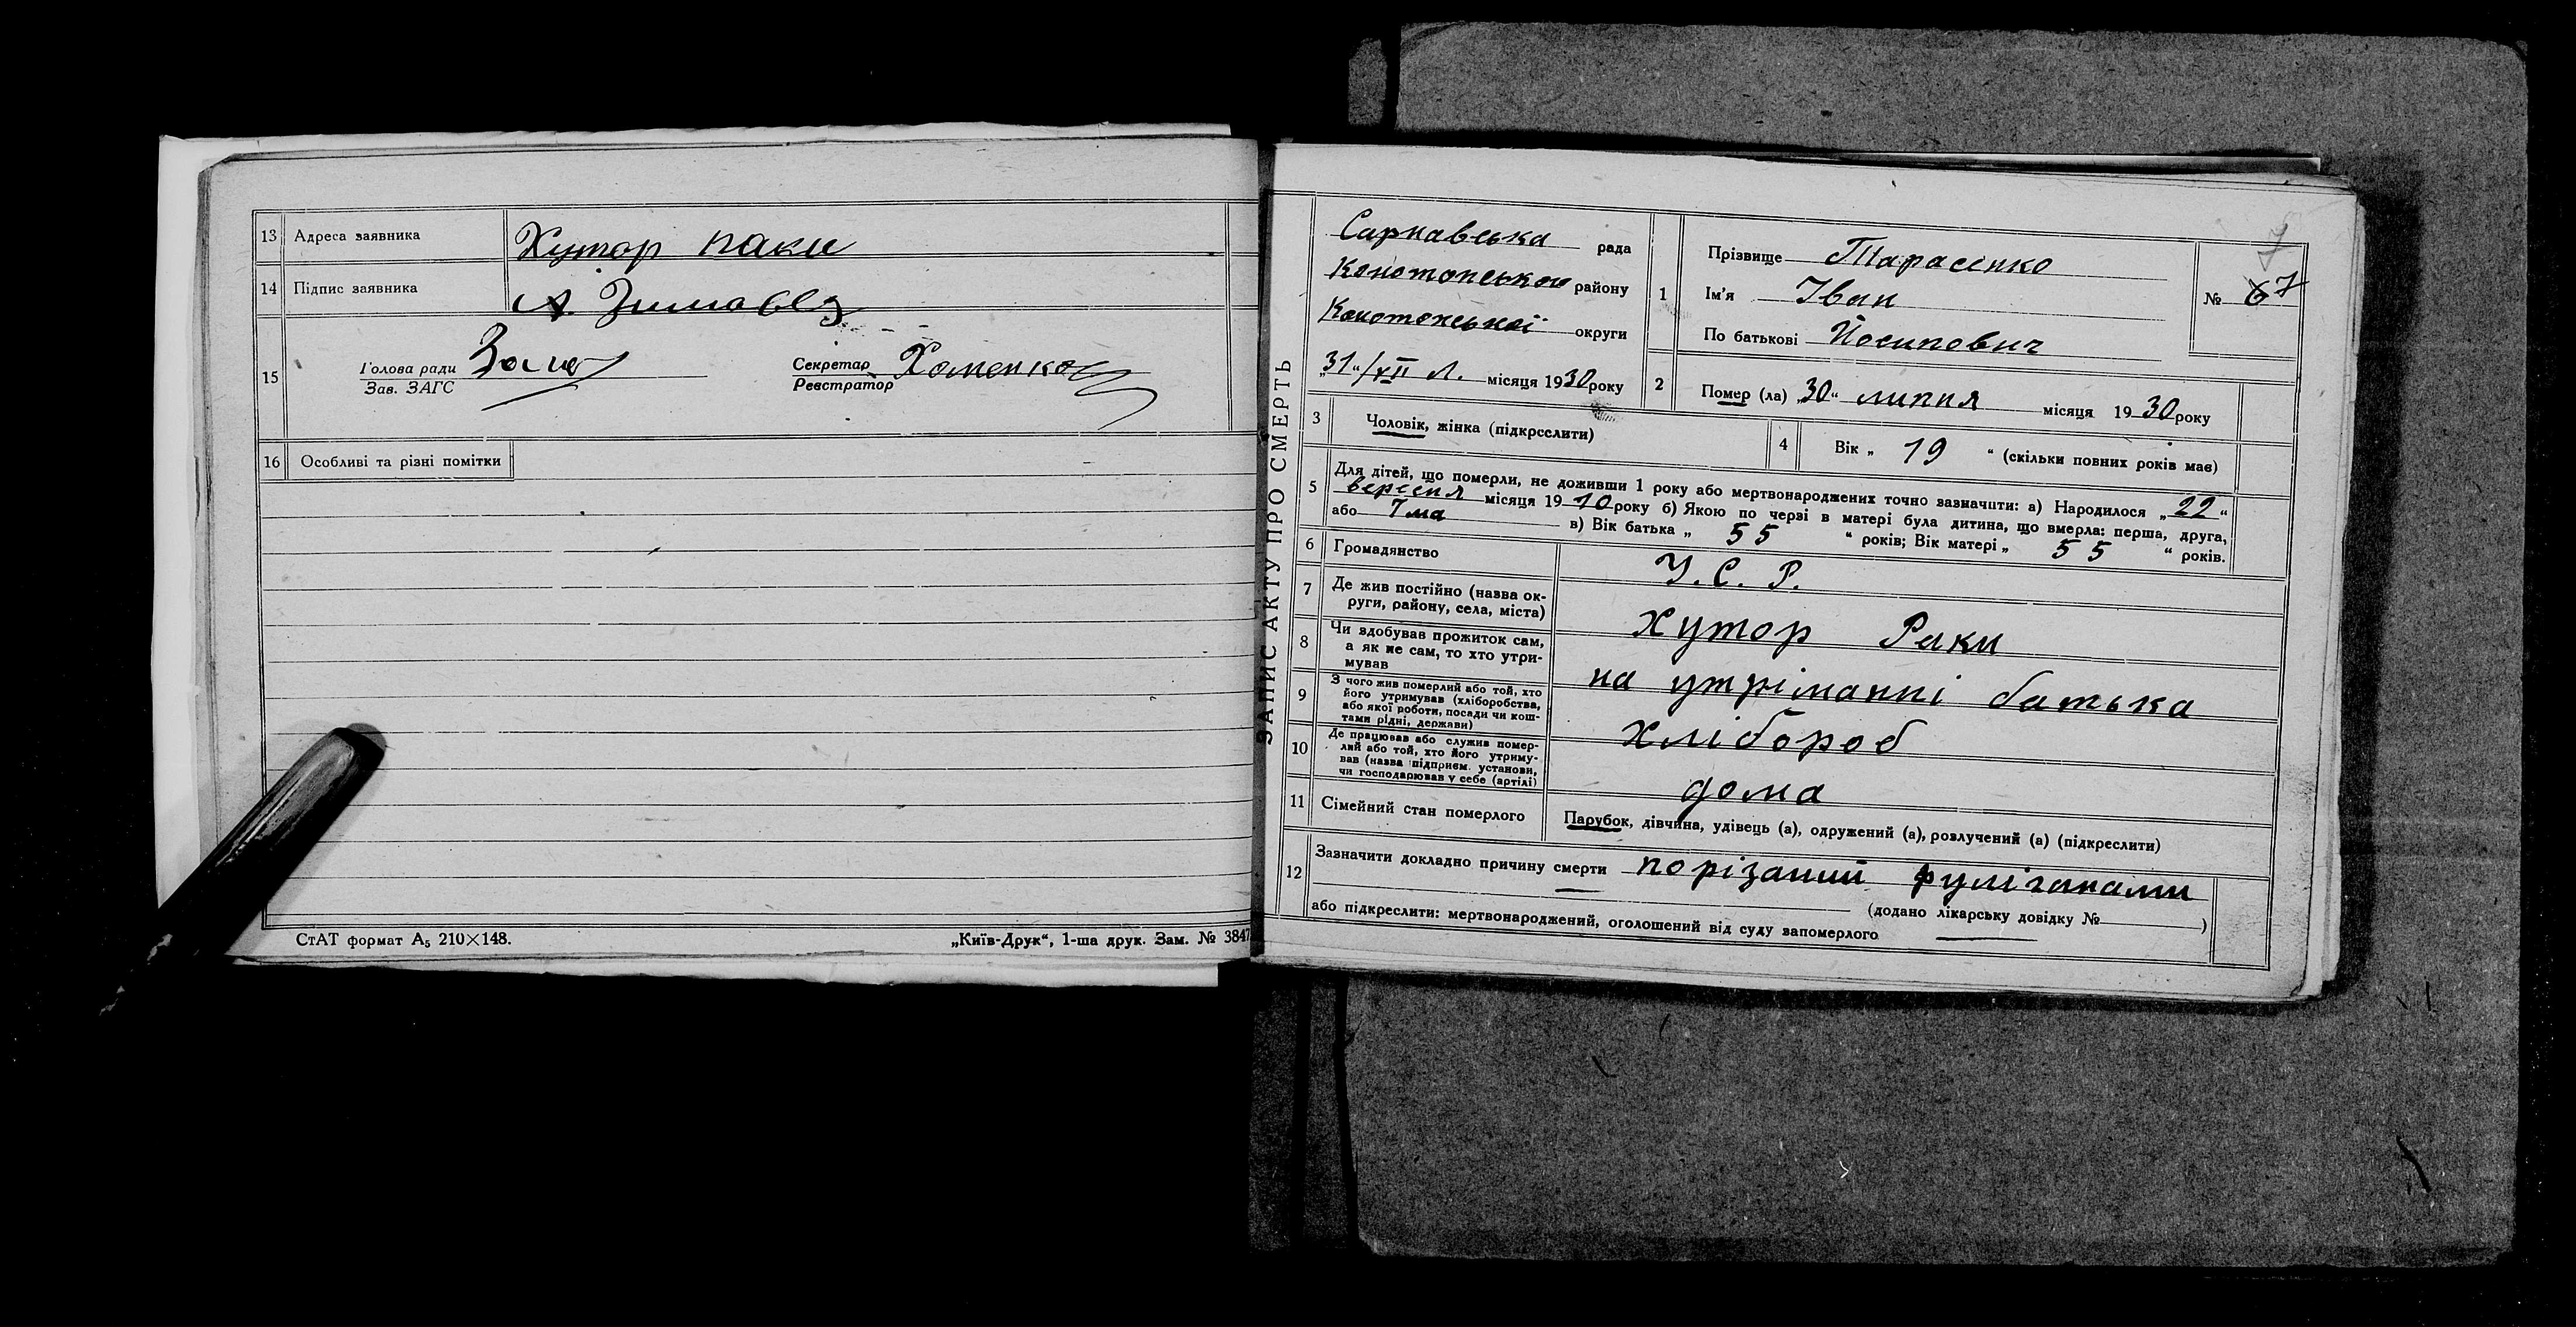 13 Адреса заявника Хутор паки
14 Підпис заявника А.
15 Голова ради Секретар Хоменко
Зав. ЗАГС Реєстратор
16 Особливі та різні помітки
СтАТ формат А₅ 210×148. „Київ-Друк“, 1-ша друк. Зам. № 3847
ЗАПИС АКТУ ПРО СМЕРТЬ
Сарнавська рада
Конотопського району
Конотопської округи
„31“/XII Л. місяця 1930 року
1 Прізвище Тарасенко
Ім'я Іван
По батькові Йосипович
№ 67
2 Помер (ла) „30“ липня місяця 1930 року
3 Чоловік, жінка (підкреслити)
4 Вік „ 19 “ (скільки повних років мав)
5 Для дітей, що померли, не доживши 1 року або мертвонароджених точно зазначити: а) Народилося „22“
вересня місяця 1910 року б) Якою по черзі в матері була дитина, що вмерла: перша, друга,
або 7ма в) Вік батька „ 55 “ років; Вік матері „ 55 “ років.
6 Громадянство У. С. Р.
7 Де жив постійно (назва ок-
руги, району, села, міста) Хутор Раки
8 Чи здобував прожиток сам,
а як не сам, то хто утри-
мував на утріманні батька
9 З чого жив померлий або той, хто
його утримував (хліборобства,
або якої роботи, посади чи кош-
тами рідні, держави) Хлібороб
10 Де працював або служив помер-
лий або той, хто його утриму-
вав (назва підприєм. установи,
чи господарював у себе (артілі) дома
11 Сімейний стан померлого Парубок, дівчина, удівець (а), одружений (а), розлучений (а) (підкреслити)
12 Зазначити докладно причину смерти порізаний фуліганами
(додано лікарську довідку № )
або підкреслити: мертвонароджений, оголошений від суду запомерлого